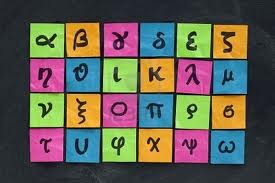 α β γ δ ε ζ
η θ ι κ λ μ
ν ξ ο π ρ σ
τ υ φ χ ψ ω